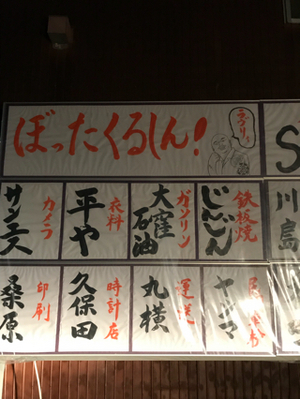 ぼったくるしん!
S
川島
鉄板焼
じんじん
ガソリン
大窪
石油
衣料
平や
カメラ
運送
丸横
時計店
久保田
印刷
桑原